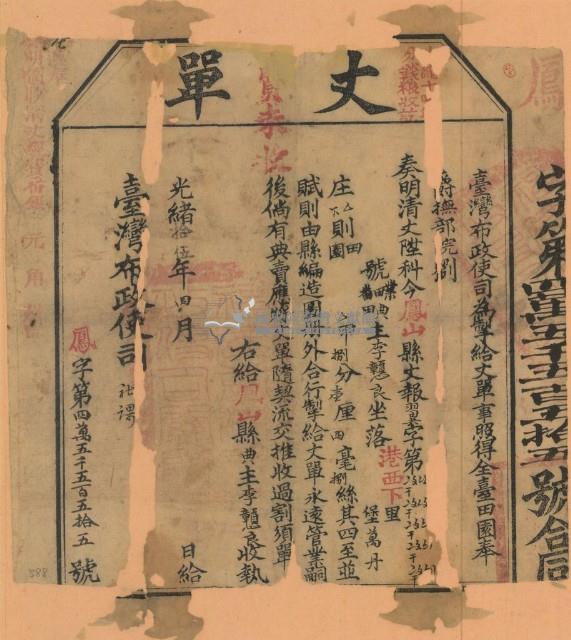 丈單
鳳
字第肆萬五千五百五拾五號合同
臺灣布政使司為掣給丈單事照得全臺田園奉
爵撫部院劉
奏明清丈陞科今鳳山縣丈報習字第
號業田典主李戇良坐落港西下里堡萬丹
庄下則田園 甲捌分壹厘四毫捌絲其四至並
賦則由縣編造圖冊外合行掣給丈單永遠管業嗣
後倘有典賣應將丈單隨契流交推收過割須單
右給鳳山縣典主李戇良收執
光緒拾五年四月 日給
臺灣布政使司
鳳字第四萬五千五百五拾五號
588